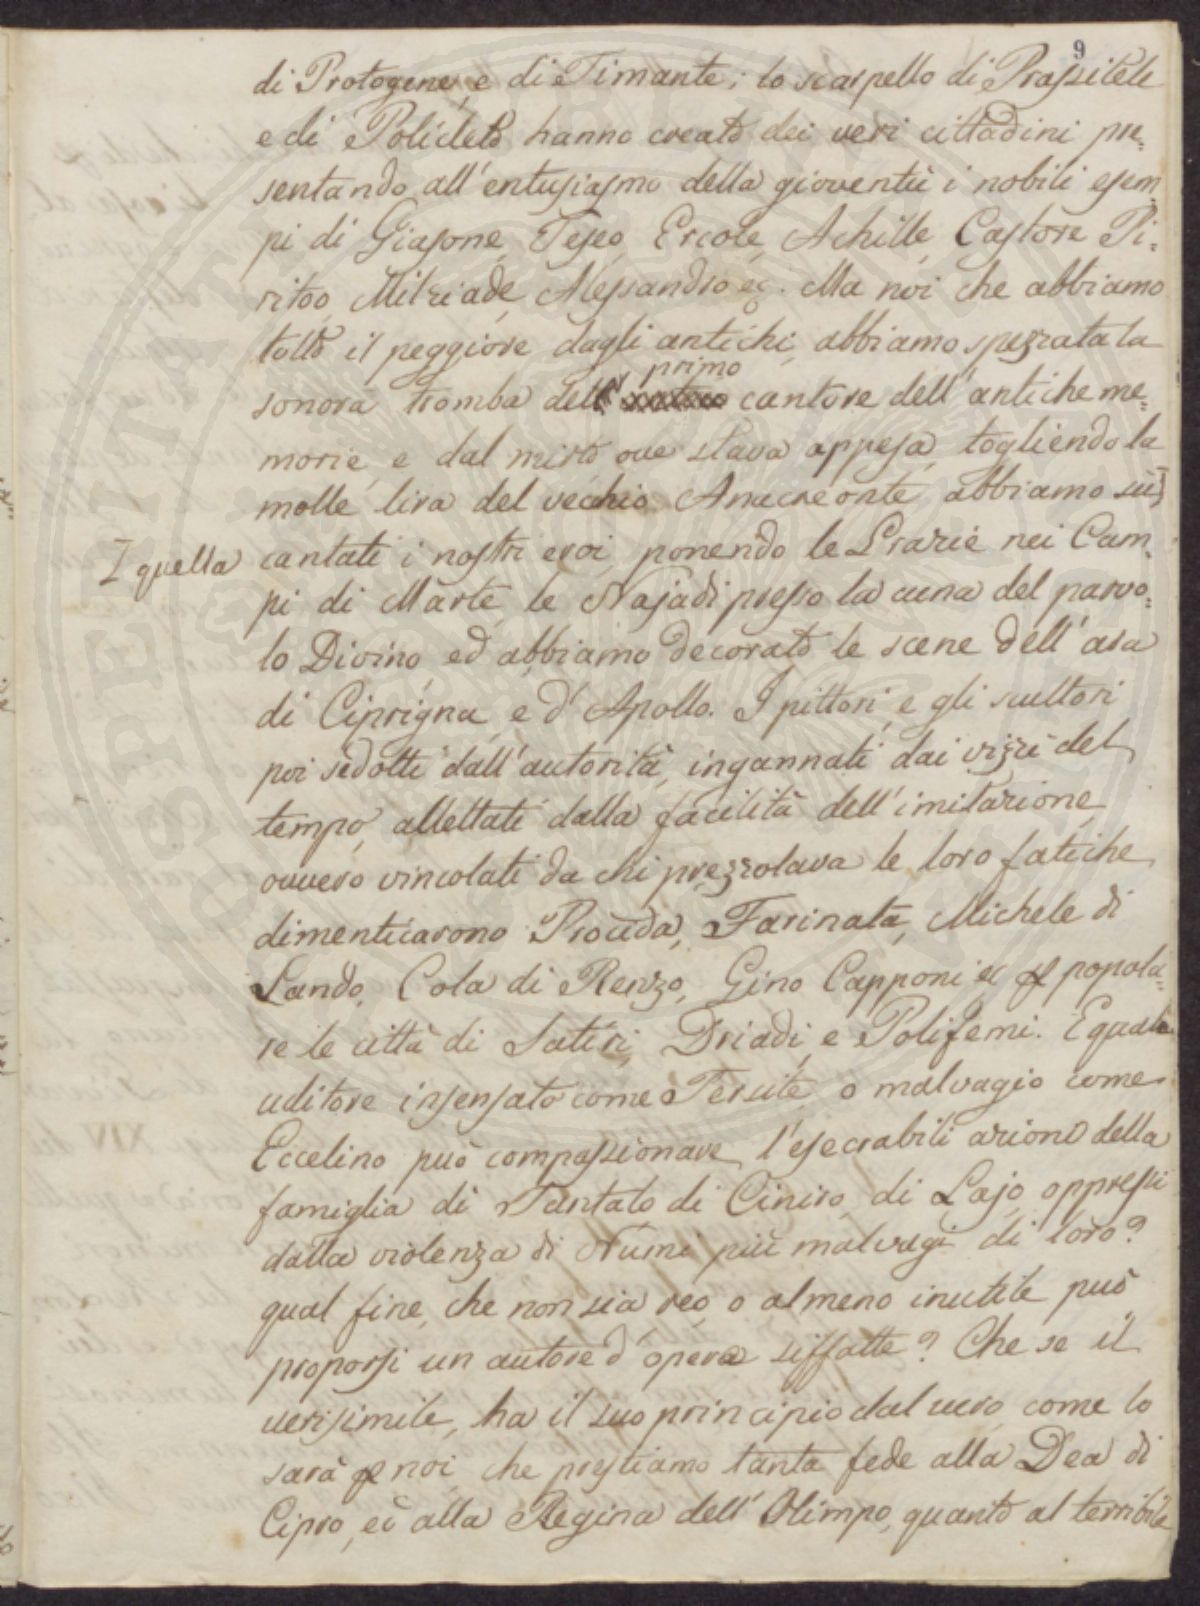 9
di Protogene, e di Timante; lo scarpello di Prassitele
e di Policleto hanno creato dei veri cittadini pre=
sentando all'entusiasmo della gioventù i nobili esem=
pi di Giasone, Teseo, Ercole, Achille, Castore Pi=
ritoo, Milziade, Alessandro ec. Ma noi che abbiamo
tolto il peggiore dagli antichi, abbiamo spezzata la
primo
sonora tromba del cantore dell'antiche me=
morie, e dal mirto ove stava appesa, togliendo la
molle lira del vecchio Anacreonte, abbiamo su
I quella
cantati i nostri eroi, ponendo le Grazie nei Cam=
pi di Marte, le Najadi presso la cuna del parvo=
lo Divino, ed abbiamo decorato le scene dell'ara
di Ciprigna, e d'Apollo. I pittori, e gli scultori
poi sedotti dall'autorità, ingannati dai vizzi del
tempo, allettati dalla facilità dell'imitazione,
ovvero vincolati da chi prezzolava le loro fatiche
dimenticarono Procida, Farinata, Michele di
Lando, Cola di Renzo, Gino Capponi ec p popola=
re le città di Satiri, Driadi, e Polifemi. E quale
uditore insensato come Tersite, o malvagio come
Eccelino può compassionare l'esecrabili azioni della
famiglia di Tantalo di Ciniro, di Lajo, oppressi
dalla violenza di Numi più malvagi di loro?
qual fine, che non sia reo, o almeno inutile può
proporsi un autore d'opera siffatte? Che se il
verisimile, ha il suo principio dal vero, come lo
sarà p noi, che prestiamo tanta fede alla Dea di
Cipro, ed alla Regina dell'Olimpo, quanto al terribile
OSPERITATI